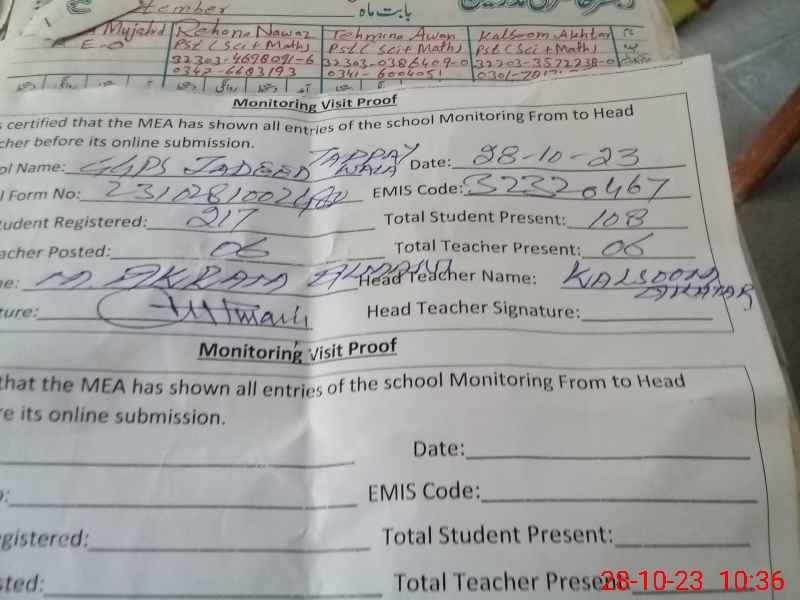 tember
بابت ماہ
Mujahid Rehana Nawaz Tehmina Awan Kalsoom Akhtar
E-O Pst (Sci + Math) Pst (Sci + Math) Pst (Sci + Math)
32303-4698091-6 32303-0386409-0 32203-3572238-0
0342-6683193 0341-6004051 0301-
Monitoring Visit Proof
s certified that the MEA has shown all entries of the school Monitoring From to Head
cher before its online submission.
ol Name: GGPS JADEED TAPPAY WALA Date: 28-10-23
l Form No: EMIS Code: 32320467
tudent Registered: 217 Total Student Present: 108
acher Posted: 06 Total Teacher Present: 06
e: M. AKRAM Head Teacher Name: KALSOOM AKHTAR
ture: Head Teacher Signature:
Monitoring Visit Proof
that the MEA has shown all entries of the school Monitoring From to Head
re its online submission.
Date:
o: EMIS Code:
gistered: Total Student Present:
sted: Total Teacher Present:
28-10-23 10:36